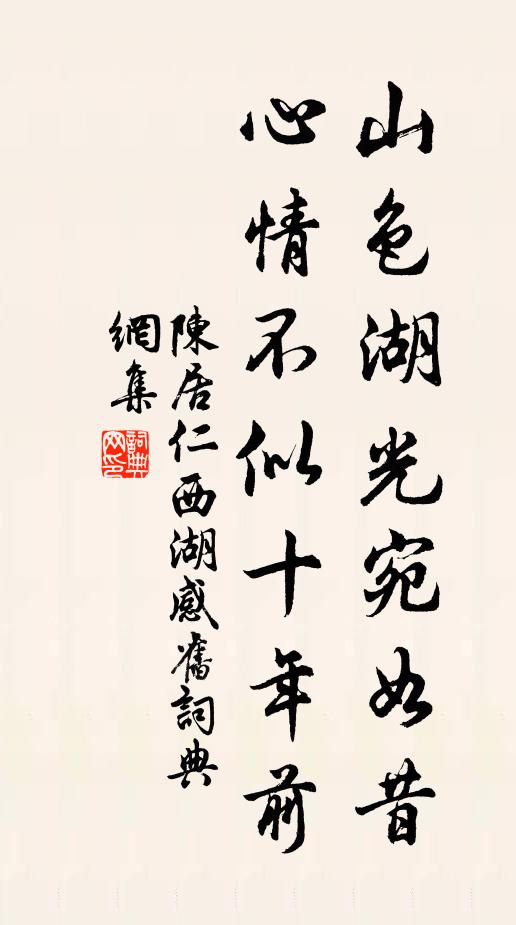 山色湖光宛如昔
心情不似十年前
陳居仁西湖感舊詞典
網集
詞典
网印